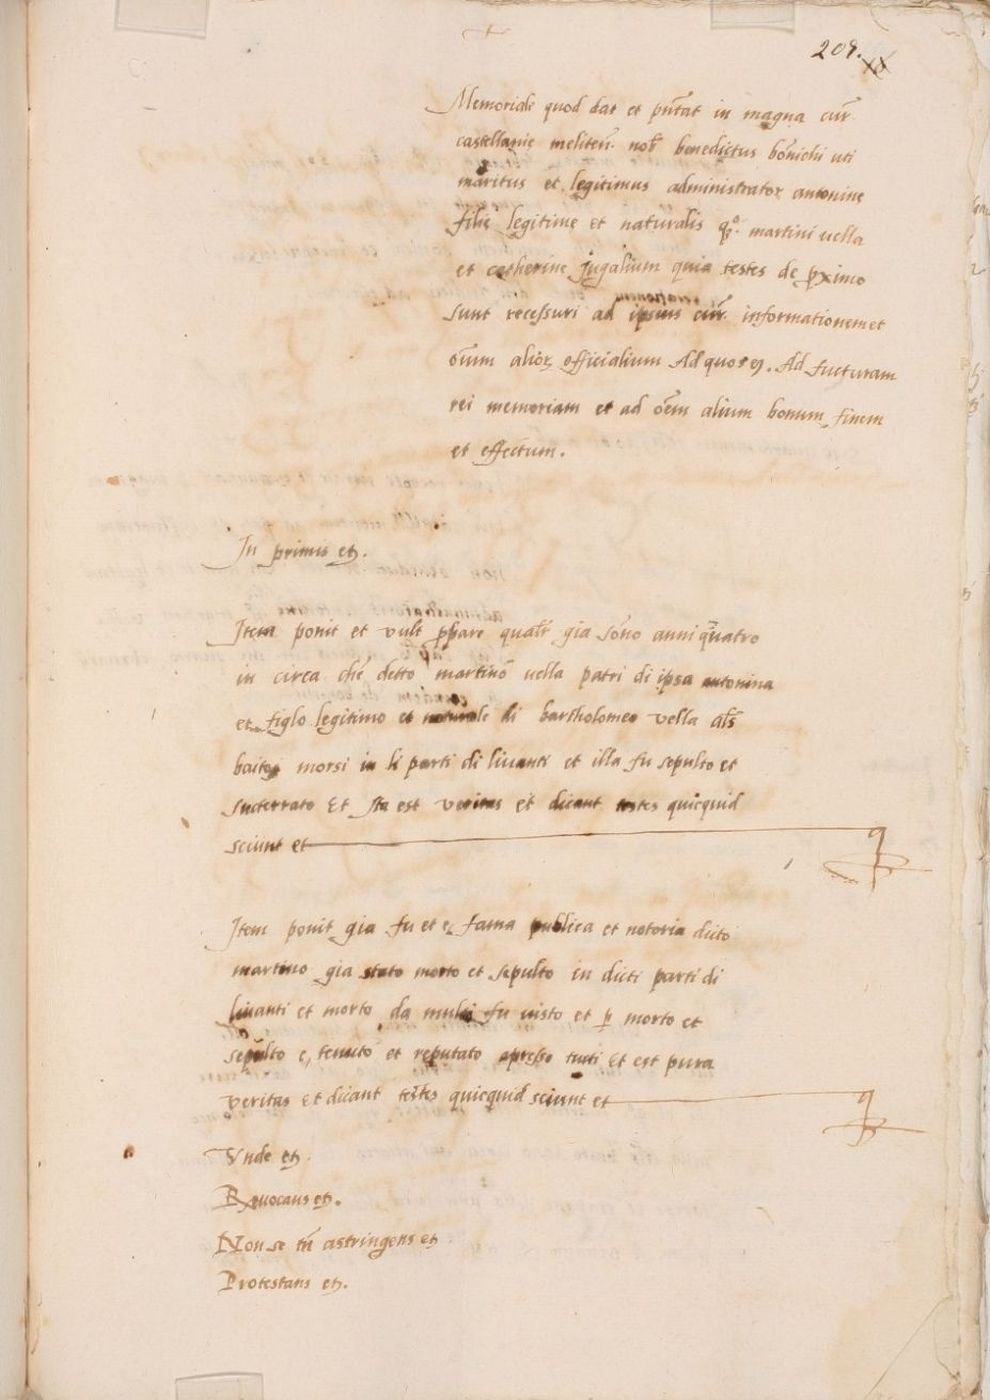 209.
Memoriale quod dat et pñtat in magna cur̃
castellanie meliteñ. nob̃ benedictus bõnichi uti
maritus et legitimus administrator antonine
filie legitime et naturalis qº. martini vella
et catherine jugalium quia testes de pximo
sunt recessuri ad ipsius cur̃. informationem et
oĩum alior officialium Ad quos etc. Ad fucturam
rei memoriam et ad oẽm alium bonum finem
et effectum.
In primis etc.
Item ponit et vult pbare qualr̃ gia sõno anni quatro
in circa chẽ detto martinõ vella patri di ipsa antonina
et figlo legitimo et naturale di bartholomeo vella als̃
morsi in li parti di livanti et illa fu sepulto et
sucterrato Et Ita est veritas et dicant testes quicquid
sciunt et
Item ponit gia fu et e fama publica et notoria dicto
martino gia stato morto et sepulto in dicti parti di
livanti et morto da multi fu visto et p morto et
sepulto e, tenuto et reputato apresso tucti Et est pura
veritas Et dicant testes quicquid sciunt et
Vnde etc.
Revocans etc.
Non se tñ astringens etc
Protestans etc.